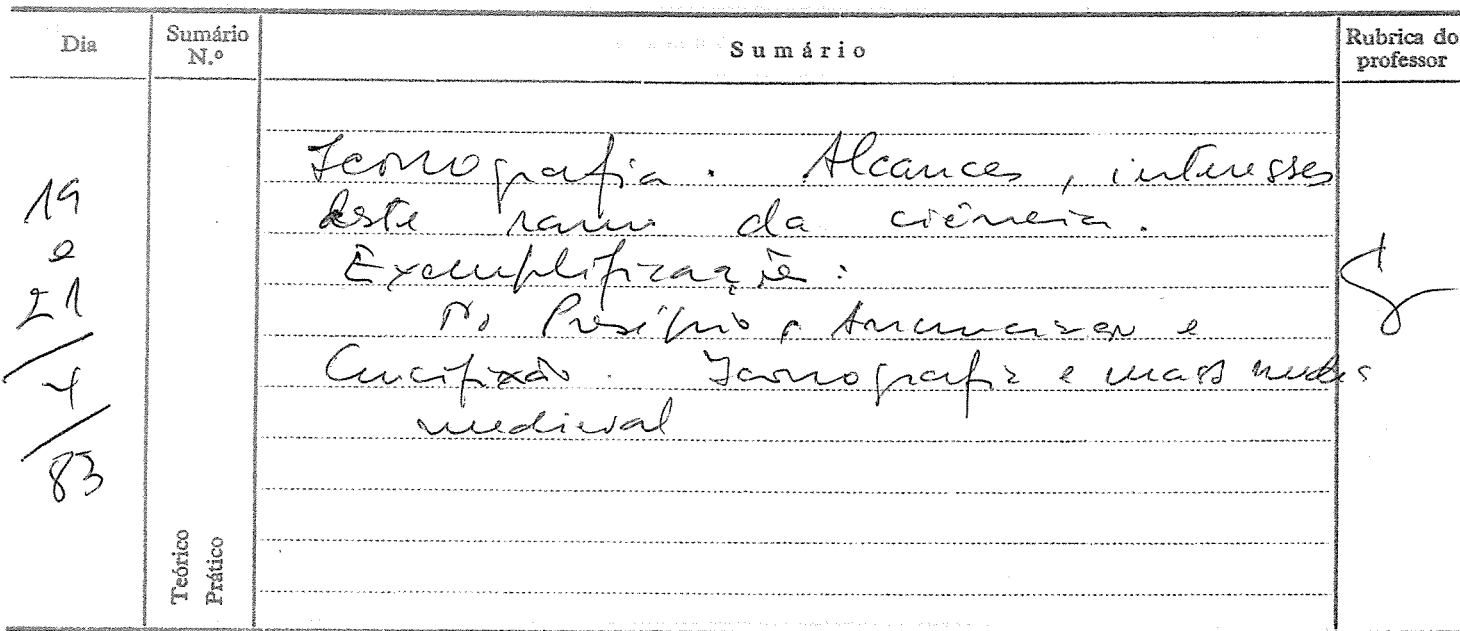 Dia
Sumário N.º
Sumário
Rubrica do professor
19
e
21
/
4
/
83
Iconografia. Alcances, interesses
deste ramo da ciência.
Exemplificação:
Presépio, Anunciação e
Crucifixão. Iconografia e
medieval
Teórico
Prático